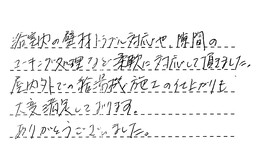 浴室内の壁材トラブル対応や、隙間の
コーキング処理など柔軟に対応して頂きました。
屋内外での給湯機施工の仕上がりも
大変満足しております。
ありがとうございました。